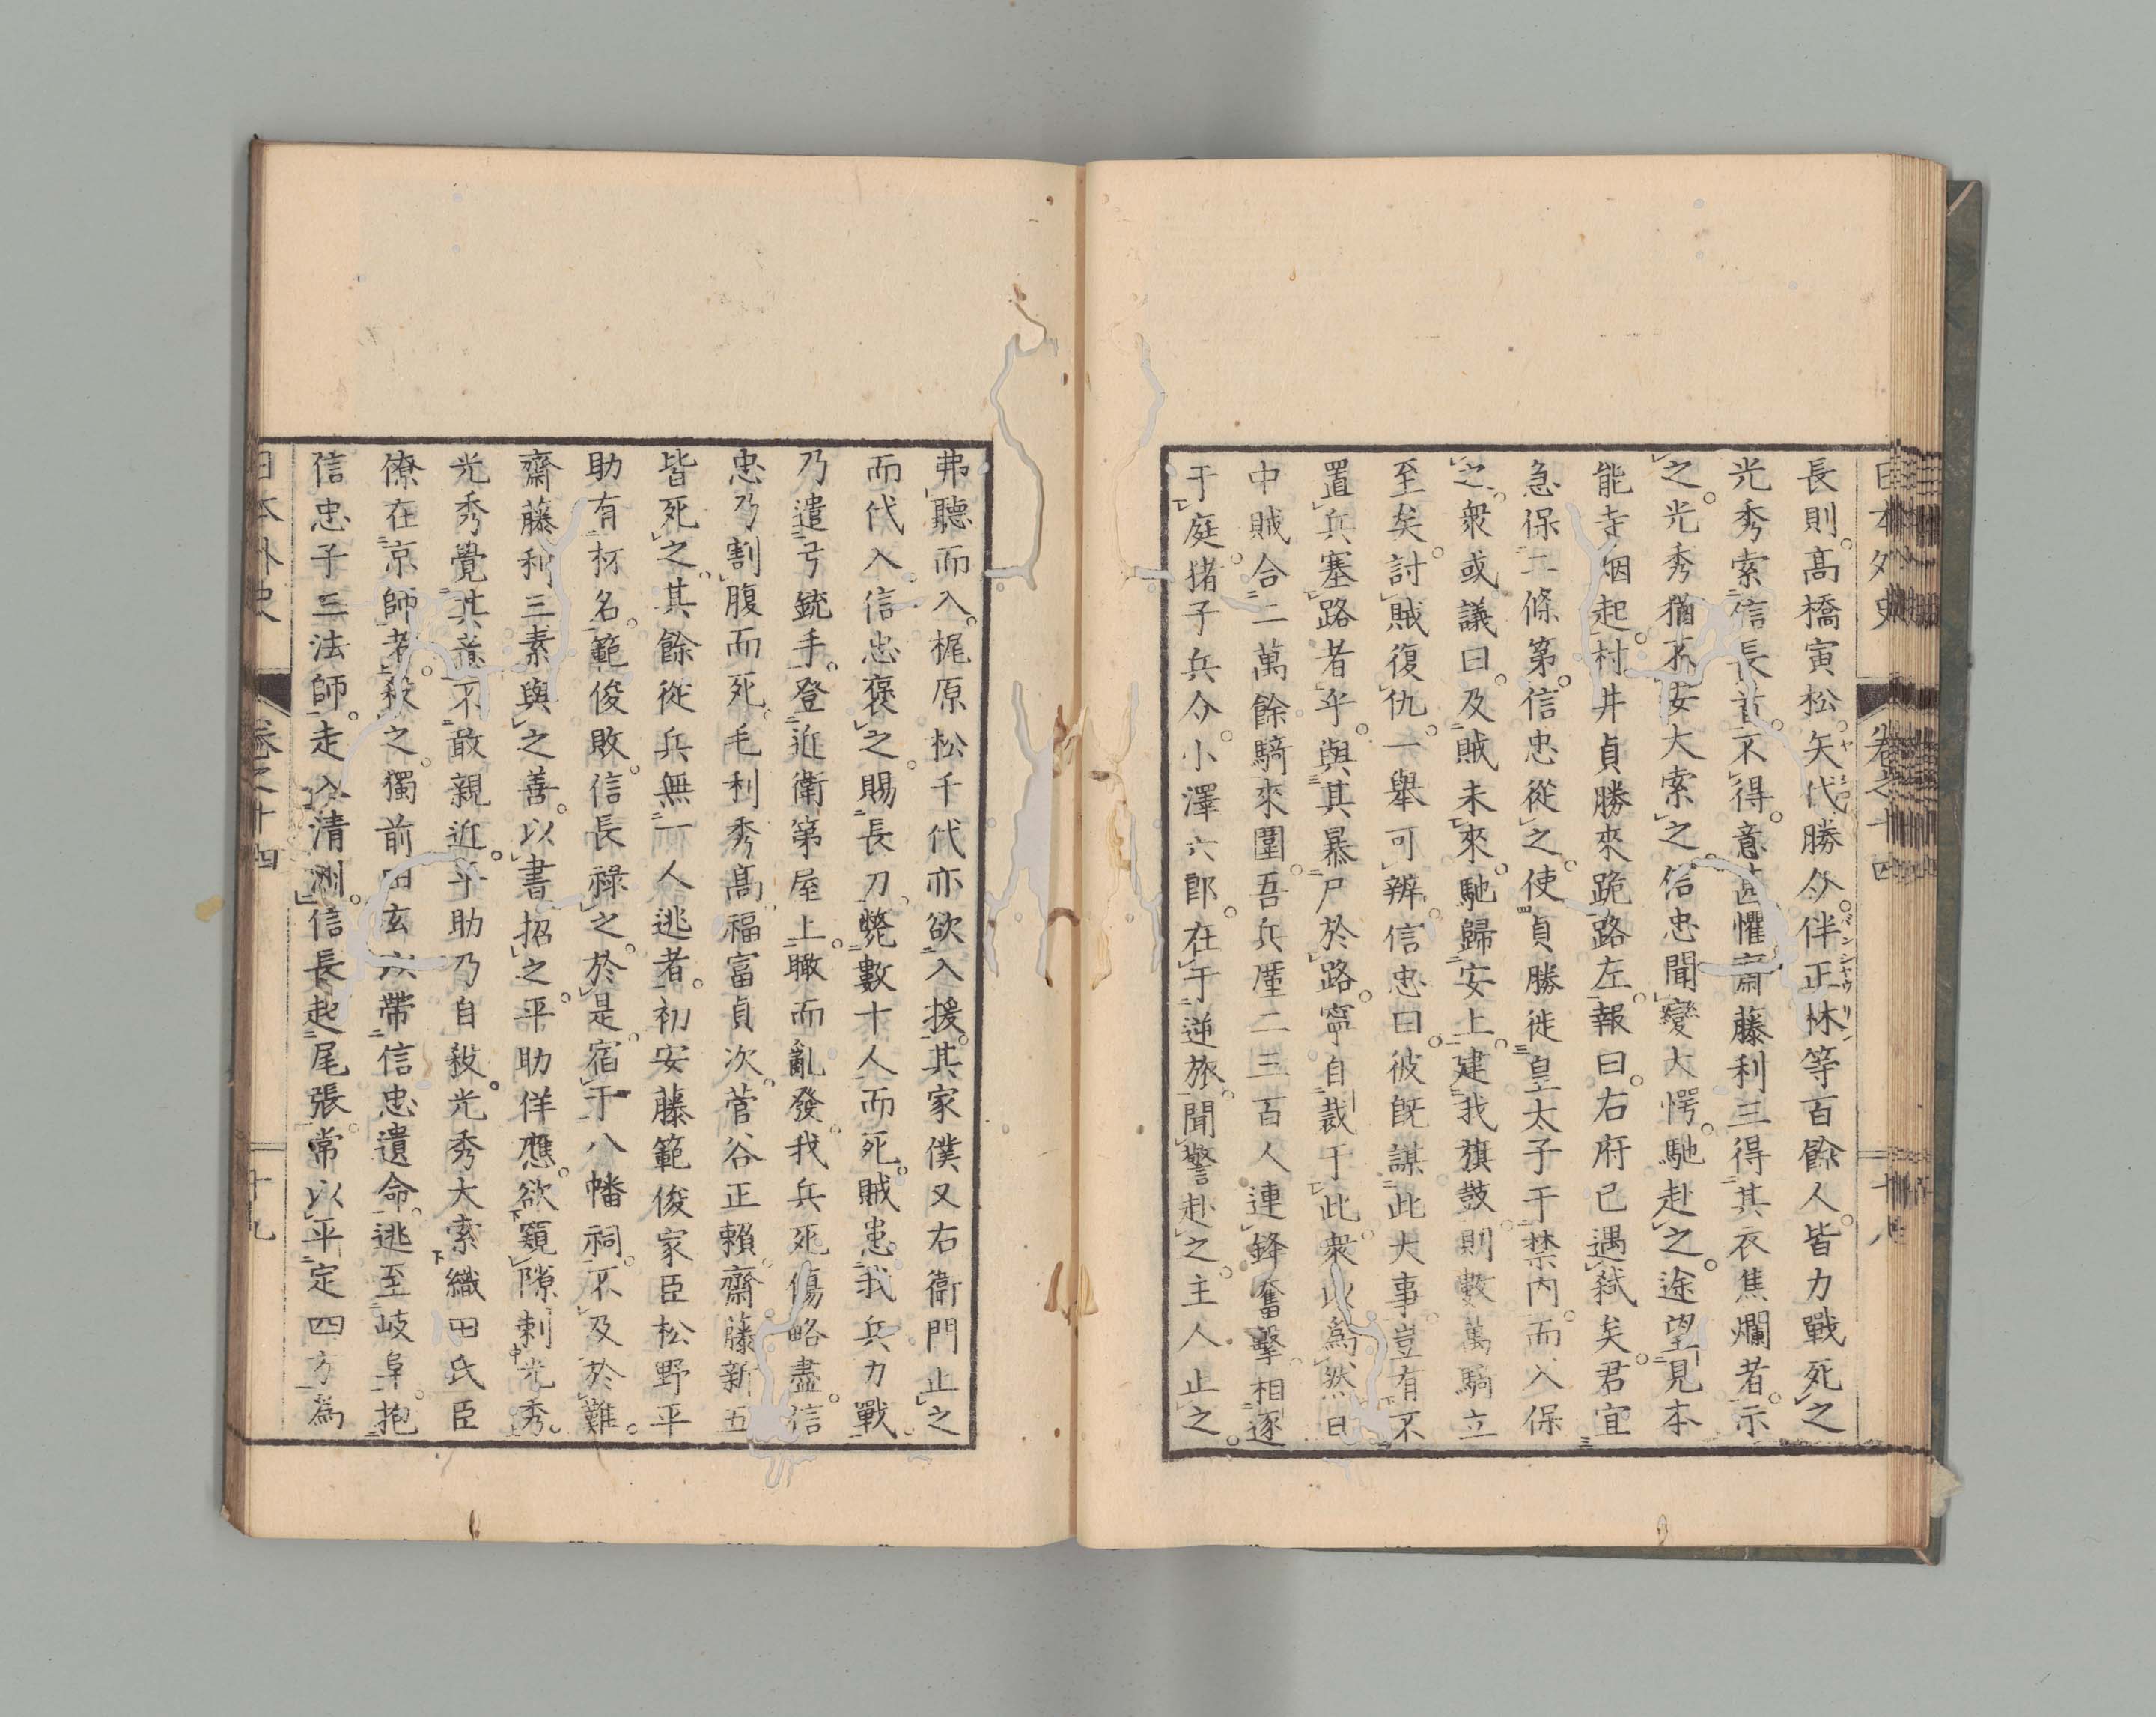 日本外史 卷之十四 十八
長則。高橋寅松。矢代勝介。伴正林等百餘人。皆力戰死之
光秀索信長首。不得。意甚懼。齋藤利三得其衣焦爛者。示
之。光秀猶不安。大索之。信忠聞變大愕。馳赴之。途望見本
能寺烟起。村井貞勝來跪路左。報曰。右府已遇弑矣。君宜
急保二條第。信忠從之。使貞勝徙皇太子于禁內。而入保
之。衆或議曰。及賊未來。馳歸安土。建我旗鼓。則數萬騎立
至矣。討賊復仇。一舉可辨。信忠曰。彼旣謀此大事。豈有不
置兵塞路者乎。與其暴尸於路。寧自裁于此。衆以爲然。日
中賊合二萬餘騎來圍。吾兵廑二三百人。連鋒奮擊。相逐
于庭。猪子兵介。小澤六郎。在于逆旅。聞警赴之。主人止之。
弗聽而入。梶原松千代亦欲入援。其家僕又右衛門止之
而代入。信忠褒之。賜長刀。斃數十人而死。賊患我兵力戰。
乃遣弓銃手。登近衛第屋上。瞰而亂發。我兵死傷略盡。信
忠乃割腹而死。毛利秀高。福富貞次。菅谷正賴。齋藤新五
皆死之。其餘從兵無一人逃者。初安藤範俊家臣松野平
助有材名。範俊敗。信長祿之。於是。宿于八幡祠。不及於難。
齋藤利三素與之善。以書招之。平助佯應。欲窺隙刺光秀。
光秀覺其意。不敢親近。平助乃自殺。光秀大索織田氏臣
僚在京師者。殺之。獨前田玄以帶信忠遺命。逃至岐阜。抱
信忠子三法師。走入清洲。信長起尾張。常以平定四方爲
日本外史 卷之十四 十九